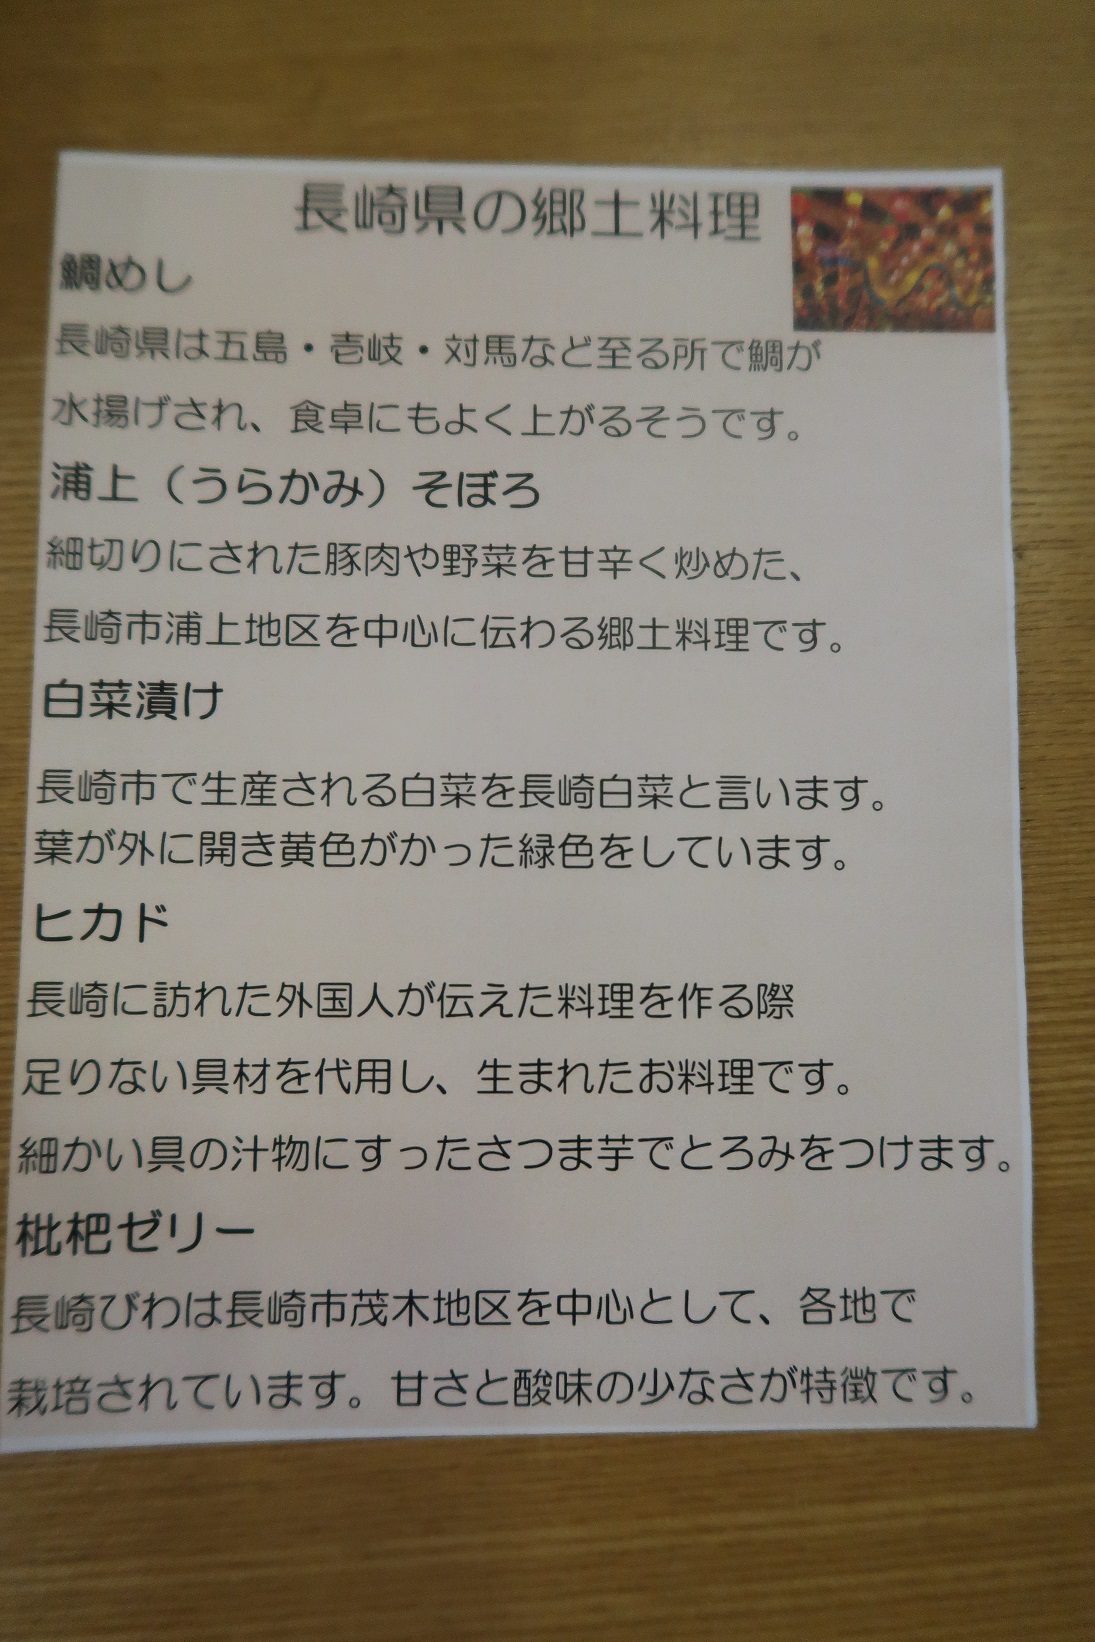 長崎県の郷土料理
鯛めし
長崎県は五島・壱岐・対馬など至る所で鯛が
水揚げされ、食卓にもよく上がるそうです。
浦上（うらかみ）そぼろ
細切りにされた豚肉や野菜を甘辛く炒めた、
長崎市浦上地区を中心に伝わる郷土料理です。
白菜漬け
長崎市で生産される白菜を長崎白菜と言います。
葉が外に開き黄色がかった緑色をしています。
ヒカド
長崎に訪れた外国人が伝えた料理を作る際
足りない具材を代用し、生まれたお料理です。
細かい具の汁物にすったさつま芋でとろみをつけます。
枇杷ゼリー
長崎びわは長崎市茂木地区を中心として、各地で
栽培されています。甘さと酸味の少なさが特徴です。